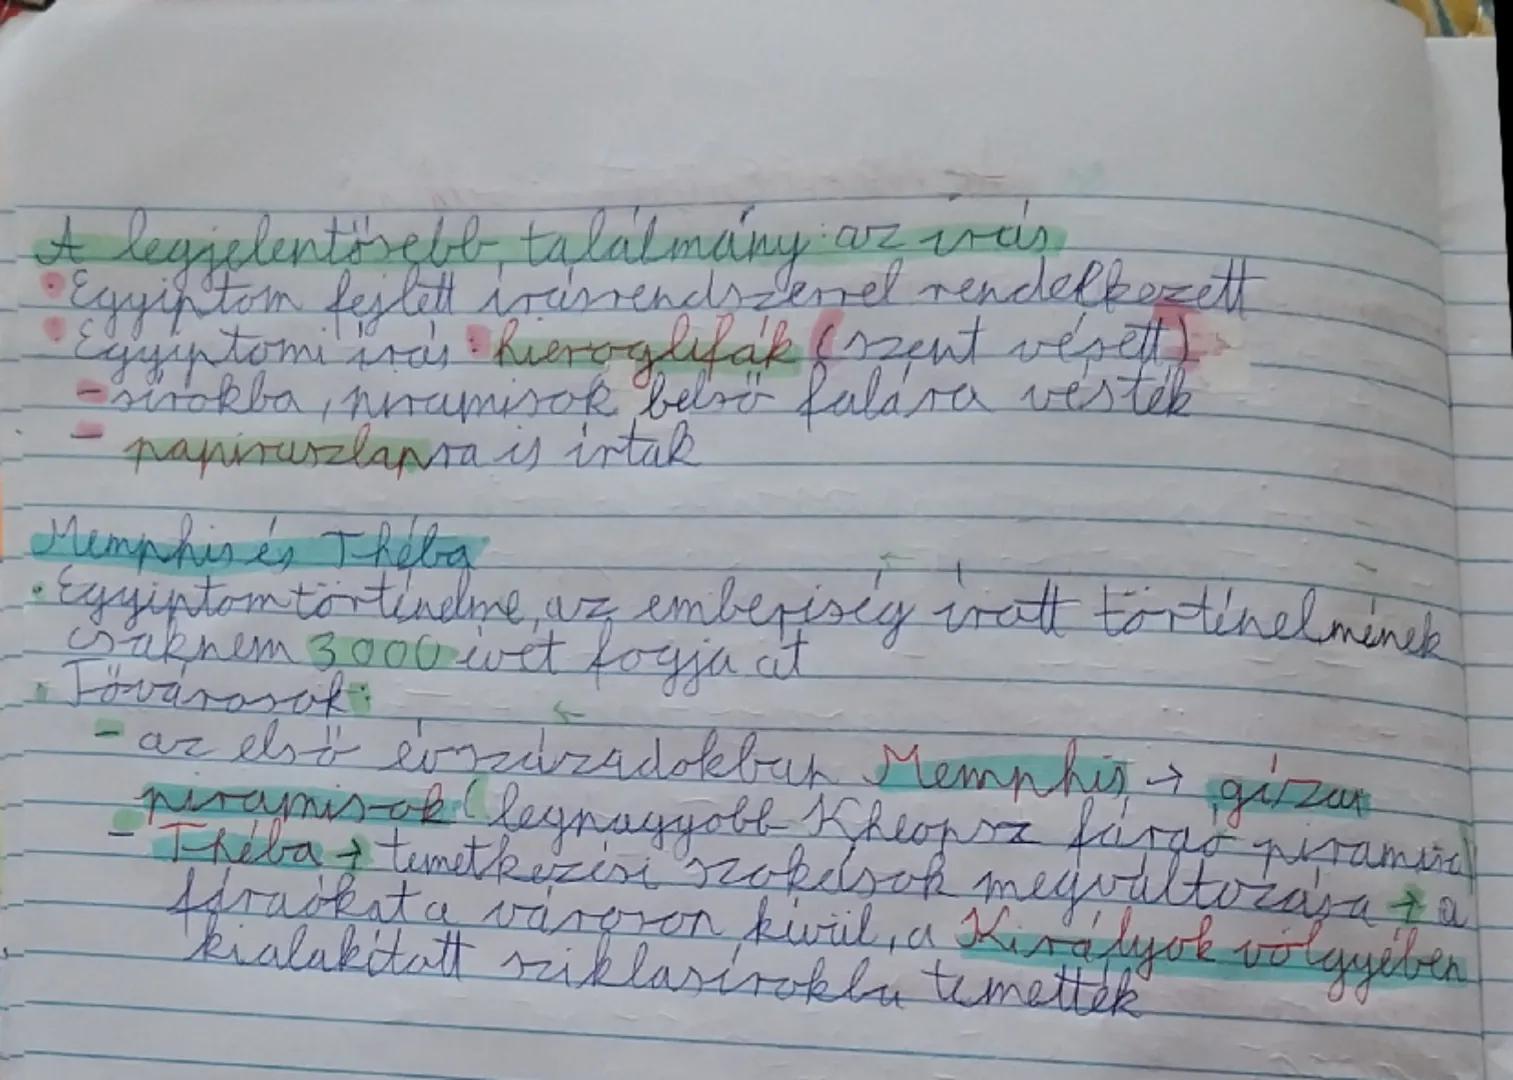 A legjelentősebb találmány: az írás
• Egyiptom fejlett írásrendszerrel rendelkezett
• Egyiptomi írás: hieroglifák (szent vésett)
- sírokba, piramisok belső falára vésték
- papiruszlapra is írtak
Memphis és Théba
• Egyiptom történelme, az emberiség írott történelmének
csaknem 3000 évét fogja át
• Fővárosok:
- az első évszázadokban Memphis → gízai
piramisok (legnagyobb Kheopsz fáraó piramisa)
- Théba → temetkezési szokások megváltozása → a
fáraókat a városon kívül, a Királyok völgyében
kialakított sziklasírokba temették